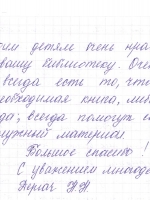 тим детям очень нра
вашу библиотеку. Оче
всегда есть то, что
еобходимая книга, ли
да, всегда помогут
нужный материал
Большое спасибо!
С уважением многоде
Н Н